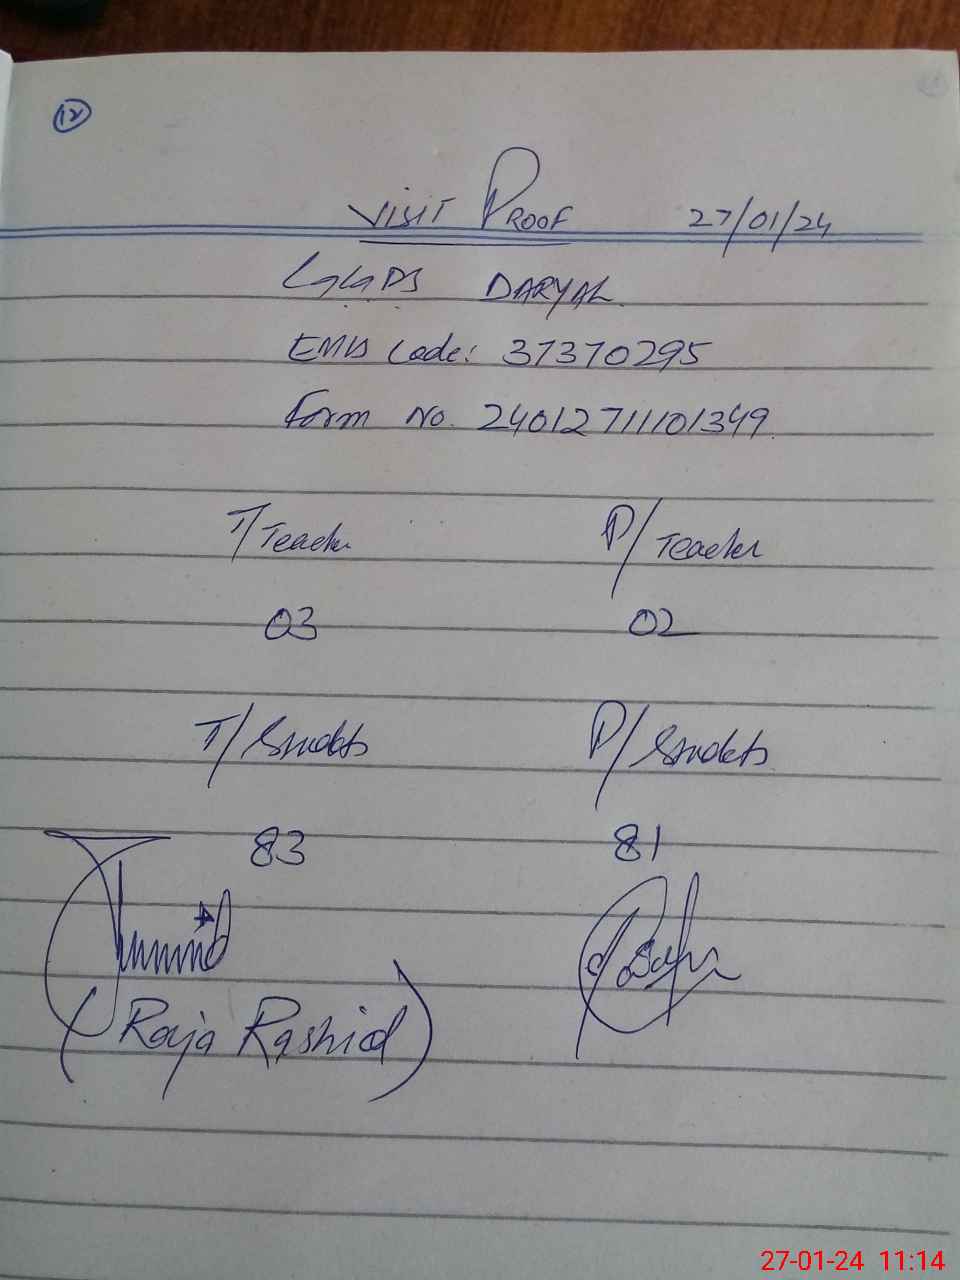 12
VISIT PROOF 27/01/24
GGPS DARYAL
EMIS Code: 37370295
Form No. 24012711101349
T/Teacher P/Teacher
03 02
T/Students P/Students
83 81
(Raja Rashid)
27-01-24 11:14